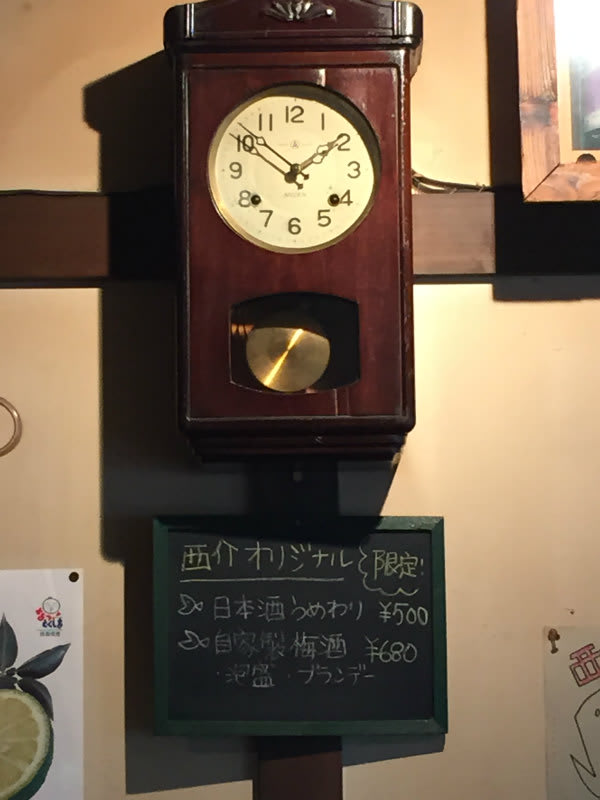 12
11 1
10 2
9 3
8 4
7 5
6
西介オリジナル 限定!
日本酒うめわり ¥500
自家製梅酒 ¥680
・泡盛・ブランデー
とくしま
西